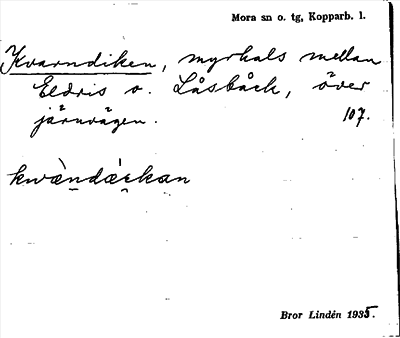 Mora sn o. tg, Kopparb. l.
Kvarndiken, myrhals mellan
Eldris o. Låsbäck, över
järnvägen. 107.
kwὲndækan
Bror Lindén 1935.